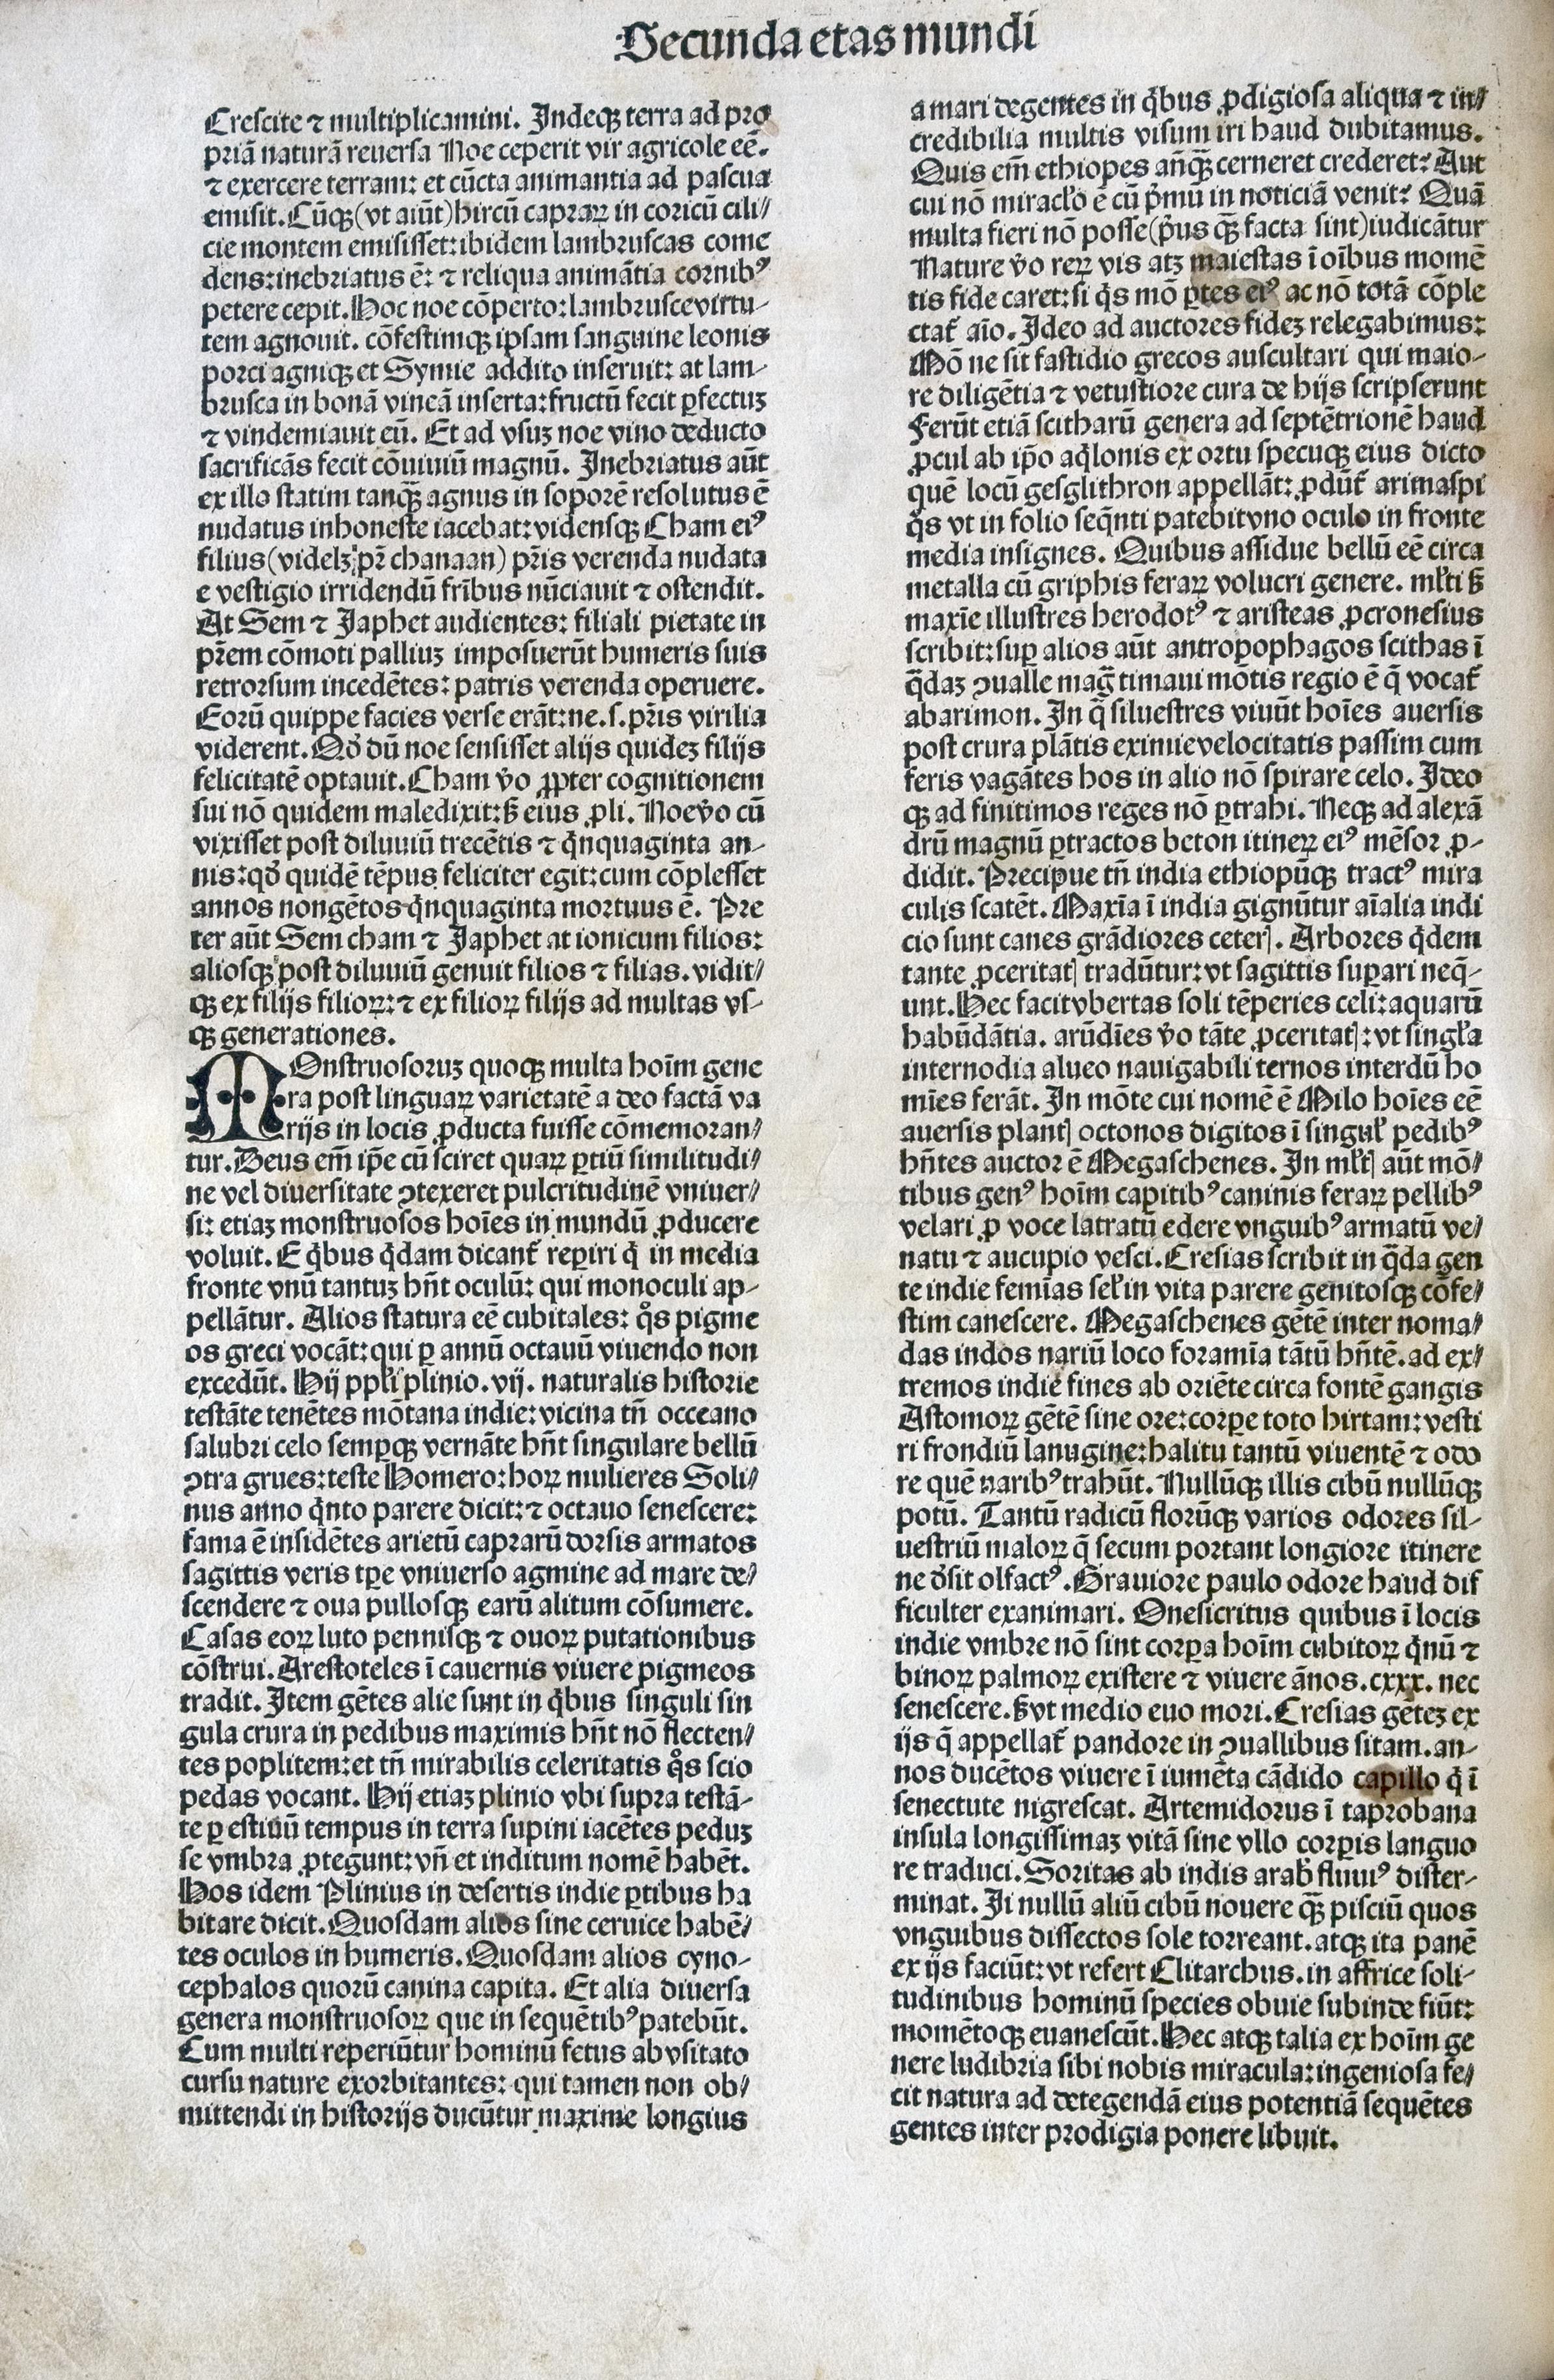 Secunda etas mundi
Crescite ⁊ multiplicamini. Indeqꝫ terra ad pro
priã naturã reuersa Noe ceperit vir agricole eẽ.
⁊ exercere terram: et cũcta animantia ad pascua
emisit. Cũqꝫ (vt aiũt) hircũ capraꝝ in coricũ cili⸗
cie montem emisisset: ibidem lambruscas come
dens: inebriatus ẽ: ⁊ reliqua animãtia cornibꝰ
petere cepit. Hoc noe cõperto: lambrusce virtu⸗
tem agnouit. cõfestimqꝫ ipsam sanguine leonis
porci agniqꝫ et Symie addito inseruit: at lam⸗
brusca in bonã vineã inserta: fructũ fecit ꝑfectuꝫ
⁊ vindemiauit eũ. Et ad vsuꝫ noe vino deducto
sacrificãs fecit cõuiuiũ magnũ. Inebriatus aũt
ex illo statim tanqꝫ̃ agnus in soporẽ resolutus ẽ
nudatus inhoneste iacebat: vidensqꝫ Cham eiꝰ
filius (videlꝫ pr̃ chanaan) pr̃is verenda nudata
e vestigio irridendũ fr̃ibus nũciauit ⁊ ostendit.
At Sem ⁊ Japhet audientes: filiali pietate in
pr̃em cõmoti palliuꝫ imposuerũt humeris suis
retrorsum incedẽtes: patris verenda operuere.
Eorũ quippe facies verse erãt: ne .s. pr̃is virilia
viderent. Qð dũ noe sensisset alijs quideꝫ filijs
felicitatẽ optauit. Cham v̾o ꝓpter cognitionem
sui nõ quidem maledixit: sꝫ eius ꝓli. Noe v̾o cũ
vixisset post diluuiũ trecẽtis ⁊ qͥnquaginta an⸗
nis: qð quidẽ tẽpus feliciter egit: cum cõplesset
annos nongẽtos qͥnquaginta mortuus ẽ. Pre
ter aũt Sem cham ⁊ Japhet at ionicum filios:
aliosqꝫ post diluuiũ genuit filios ⁊ filias. vidit⸗
qꝫ ex filijs filioꝝ: ⁊ ex filioꝝ filijs ad multas vs⸗
qꝫ generationes.
MOnstruosoruꝫ quoqꝫ multa hoĩm gene
ra post linguaꝝ varietatẽ a deo factã va
rijs in locis ꝓducta fuisse cõmemoran⸗
tur. Deus em̃ ip̃e cũ sciret quaꝝ ꝑtiũ similitudi⸗
ne vel diuersitate ↄtexeret pulcritudinẽ vniuer⸗
si: etiaꝫ monstruosos hoĩes in mundũ ꝓducere
voluit. E qͥbus qͥdam dicant̃ reꝑiri qͥ in media
fronte vnũ tantuꝫ hñt oculũ: qui monoculi ap⸗
pellãtur. Alios statura eẽ cubitales: qͦs pigme
os greci vocãt: qui ꝑ annũ octauũ viuendo non
excedũt. Hij pp̃li plinio .vij. naturalis historie
testãte tenẽtes mõtana indie: vicina tñ occeano
salubri celo semꝑqꝫ vernãte hñt singulare bellũ
ↄtra grues: teste Homero: hoꝝ mulieres Soli⸗
nus anno qͥnto parere dicit: ⁊ octauo senescere:
fama ẽ insidẽtes arietũ caprarũ dorsis armatos
sagittis veris tꝑe vniuerso agmine ad mare de⸗
scendere ⁊ oua pullosqꝫ earũ alitum cõsumere.
Casas eoꝝ luto pennisqꝫ ⁊ ouoꝝ putationibus
cõstrui. Arestoteles ĩ cauernis viuere pigmeos
tradit. Item gẽtes alie sunt in qͥbus singuli sin
gula crura in pedibus maximis hñt nõ flecten⸗
tes poplitem: et tñ mirabilis celeritatis qͦs scio
pedas vocant. Hij etiaꝫ plinio vbi supra testã⸗
te ꝑ estiuũ tempus in terra supini iacẽtes peduꝫ
se vmbra ꝓtegunt: vñ et inditum nomẽ habẽt.
Hos idem Plinius in desertis indie ꝑtibus ha
bitare dicit. Quosdam alios sine ceruice habẽ⸗
tes oculos in humeris. Quosdam alios cyno⸗
cephalos quorũ canina capita. Et alia diuersa
genera monstruosoꝝ que in sequẽtibꝰ patebũt.
Cum multi reperiũtur hominũ fetus ab vsitato
cursu nature exorbitantes: qui tamen non ob⸗
mittendi in historijs ducũtur maxime longius
a mari degentes in qͥbus ꝓdigiosa aliqua ⁊ in⸗
credibilia multis visum iri haud dubitamus.
Quis em̃ ethiopes añqꝫ̃ cerneret crederet: Aut
cui nõ miracło ẽ cũ pͥmũ in noticiã venit: Quã
multa fieri nõ posse (pͥus qꝫ̃ facta sint) iudicãtur
Nature v̾o reꝝ vis atqꝫ maiestas ĩ oĩbus momẽ
tis fide caret: si qͥs mõ ꝑtes eiꝰ ac nõ totã cõple
ctat̃ aĩo. Ideo ad auctores fideꝫ relegabimus:
Mõ ne sit fastidio grecos auscultari qui maio⸗
re diligẽtia ⁊ vetustiore cura de hijs scripserunt
Ferũt etiã scitharũ genera ad septẽtrionẽ haud
ꝓcul ab ip̃o aqͥlonis exortu specuqꝫ eius dicto
quẽ locũ gesglithron appellãt: ꝓdũt̃ arimaspi
qͦs vt in folio seqñti patebit vno oculo in fronte
media insignes. Quibus assidue bellũ eẽ circa
metalla cũ griphis feraꝝ volucri genere. młti sꝫ
maxĩe illustres herodotꝰ ⁊ aristeas ꝓcronesius
scribit: suꝑ alios aũt antropophagos scithas ĩ
qͣdaꝫ ↄualle mag̃ timaui mõtis regio ẽ q̃ vocat̃
abarimon. In q̃ siluestres viuũt hoĩes auersis
post crura plãtis eximie velocitatis passim cum
feris vagãtes hos in alio nõ spirare celo. Ideo
qꝫ ad finitimos reges nõ ꝑtrahi. Neqꝫ ad alexã
drũ magnũ ꝑtractos beton itineꝝ eiꝰ mẽsor ꝓ⸗
didit. Precipue tñ india ethiopũqꝫ tractꝰ mira
culis scatẽt. Maxĩa ĩ india gignũtur aĩalia indi
cio sunt canes grãdiores ceterꝭ. Arbores qͥdem
tante ꝓceritatꝭ tradũtur: vt sagittis suꝑari neq̃⸗
unt. Hec facit vbertas soli tẽperies celi: aquarũ
habũdãtia. arũdĩes v̾o tãte ꝓceritatꝭ: vt singła
internodia alueo nauigabili ternos interdũ ho
mĩes ferãt. In mõte cui nomẽ ẽ Milo hoĩes eẽ
auersis plantꝭ octonos digitos ĩ singuł pedibꝰ
hñtes auctor ẽ Megaschenes. In młtꝭ aũt mõ⸗
tibus genꝰ hoĩm capitibꝰ caninis feraꝝ pellibꝰ
velari ꝓ voce latratũ edere vnguibꝰ armatũ ve⸗
natu ⁊ aucupio vesci. Cresias scribit in qͣda gen
te indie femĩas seł in vita parere genitosqꝫ cõfe⸗
stim canescere. Megaschenes gẽtẽ inter noma⸗
das indos nariũ loco foramĩa tãtũ hñtẽ. ad ex⸗
tremos indie fines ab oriẽte circa fontẽ gangis
Astomoꝝ gẽtẽ sine ore: corꝑe toto hirtam: vesti
ri frondiũ lanugine: halitu tantũ viuentẽ ⁊ odo
re quẽ naribꝰ trahũt. Nullũqꝫ illis cibũ nullũqꝫ
potũ. Tantũ radicũ florũqꝫ varios odores sil⸗
uestriũ maloꝝ q̃ secum portant longiore itinere
ne d̾sit olfactꝰ. Grauiore paulo odore haud dif
ficulter exanimari. Onesicritus quibus ĩ locis
indie vmbre nõ sint corꝑa hoĩm cubitoꝝ qͥnũ ⁊
binoꝝ palmoꝝ existere ⁊ viuere ãnos .cxxx. nec
senescere. sꝫ vt medio euo mori. Cresias gẽteꝫ ex
ijs q̃ appellat̃ pandore in ↄuallibus sitam. an⸗
nos ducẽtos viuere ĩ iumẽta cãdido capillo qͥ ĩ
senectute nigrescat. Artemidorus ĩ taprobana
insula longissimaꝫ vitã sine vllo corꝑis languo
re traduci. Soritas ab indis arab̃ fluuiꝰ dister⸗
minat. Ji nullũ aliũ cibũ nouere qꝫ̃ pisciũ quos
vnguibus dissectos sole torreant. atqꝫ ita panẽ
ex ijs faciũt: vt refert Clitarchus. in affrice soli⸗
tudinibus hominũ species obuie subinde fiũt:
momẽtoqꝫ euanescũt. Hec atqꝫ talia ex hoĩm ge
nere ludibria sibi nobis miracula: ingeniosa fe⸗
cit natura ad detegendã eius potentiã sequẽtes
gentes inter prodigia ponere libuit.